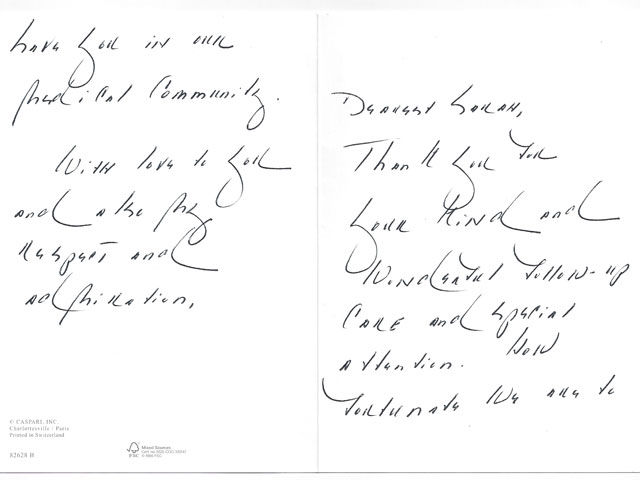 Dearest Sarah,
Thank you for
your kind and
wonderful follow-up
care and special
attention. How
fortunate we are to
have you in our
medical community.
With love to you
and also my
respect and
admiration,
© CASPARI, INC.
Charlottesville / Paris
Printed in Switzerland
82628 B
FSC
Mixed Sources
© 1996 FSC